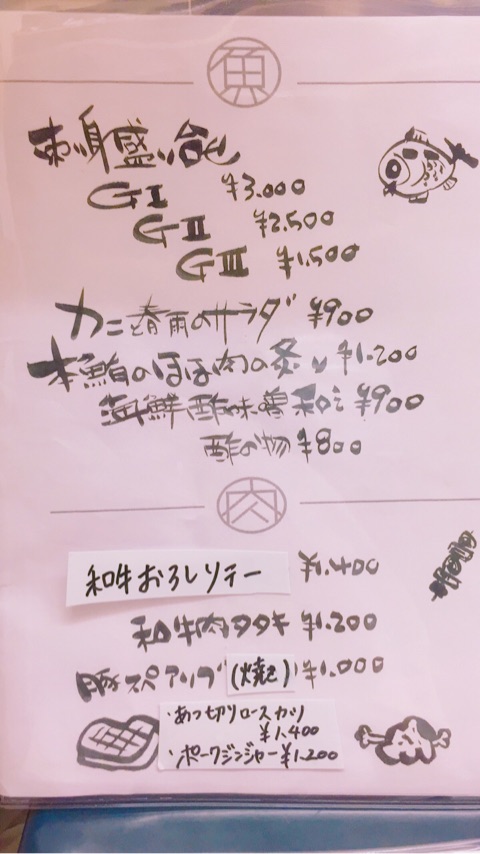 魚
刺身盛り合せ
GⅠ ¥3.000
GⅡ ¥2.500
GⅢ ¥1.500
カニと春雨のサラダ ¥900
本鮪のほほ肉の炙り ¥1.200
海鮮酢味噌和え ¥900
酢の物 ¥800
肉
和牛おろしソテー ¥1.400
和牛肉タタキ ¥1.200
豚スペアリブ(焼き) ¥1.000
・あつ切りロースカツ
¥1.400
・ポークジンジャー ¥1.200